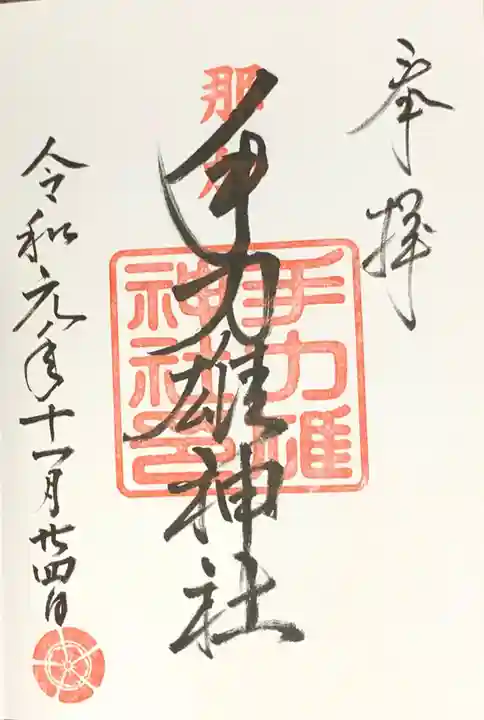 奉拝
手力雄神社
手力雄
神社印
令和元年十一月廿四日